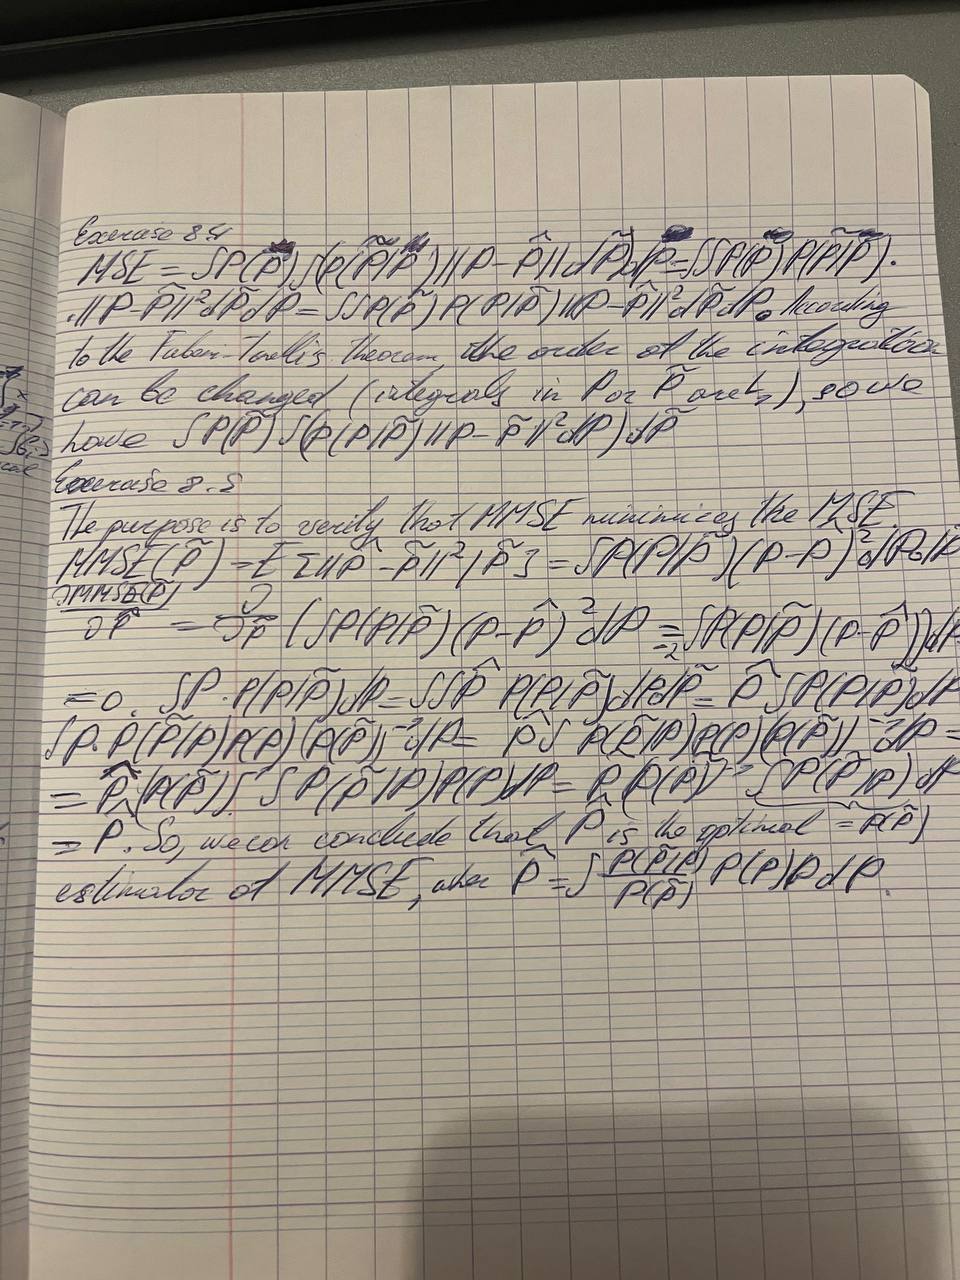 Exercise 8.4
MSE = ∫P(P)∫(P(P̃|P)||P-P̂||dP̃)dP = ∫∫P(P)P(P̃|P).
.||P-P̂||²dP̃dP = ∫∫P(P̃)P(P|P̃)||P-P̂||²dP̃dP. According
to the Fubini-Tonelli's theorem the order of the integration
can be changed (integrals in P or P̃), so we
have ∫P(P̃)∫(P(P|P̃)||P-P̂||²dP)dP̃
Exercise 8.5
The purpose is to verify that MMSE minimizes the MSE.
MMSE(P̃) = E[||P̂-P̃||²|P̃] = ∫P(P|P̃)(P-P̂)²dP
∂MMSE(P̃)/∂P̂ = ∂/∂P̂(∫P(P|P̃)(P-P̂)²dP = -2∫P(P|P̃)(P-P̂))dP
=0. ∫P·P(P|P̃)dP = ∫∫P̂ P(P|P̃)dPdP̃ = P̂∫P(P|P̃)dP
∫P·P(P̃|P)P(P)(P(P̃))⁻¹dP = P̂∫P(P̃|P)P(P)(P(P̃))⁻¹dP =
= P̂(P(P̃))⁻¹∫P(P̃|P)P(P)dP = P̂(P(P̃))⁻¹∫P(P̃|P)dP
= P̂. So, we can conclude that P̂ is the optimal =P(P̃)
estimator of MMSE, when P̂ = ∫P(P̃|P)/P(P̃) P(P)PdP.